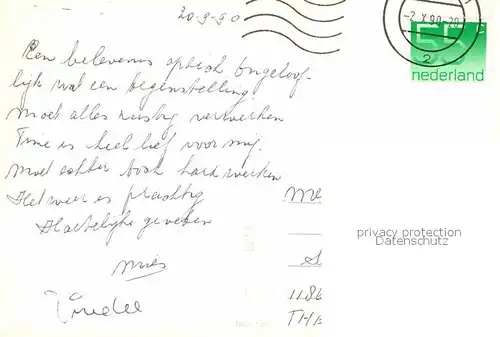 20-9-90
-2.X.90-20
55
c
nederland
2
Een belevenis op zich Ongeloof-
lijk wat een tegenstelling.
Moet alles rustig verwerken
Tine is heel lief voor mij.
Moet echter toch hard werken
Het weer is prachtig
Hartelijke groeten
Mies
Me
privacy protection
Datenschutz
1186
THE